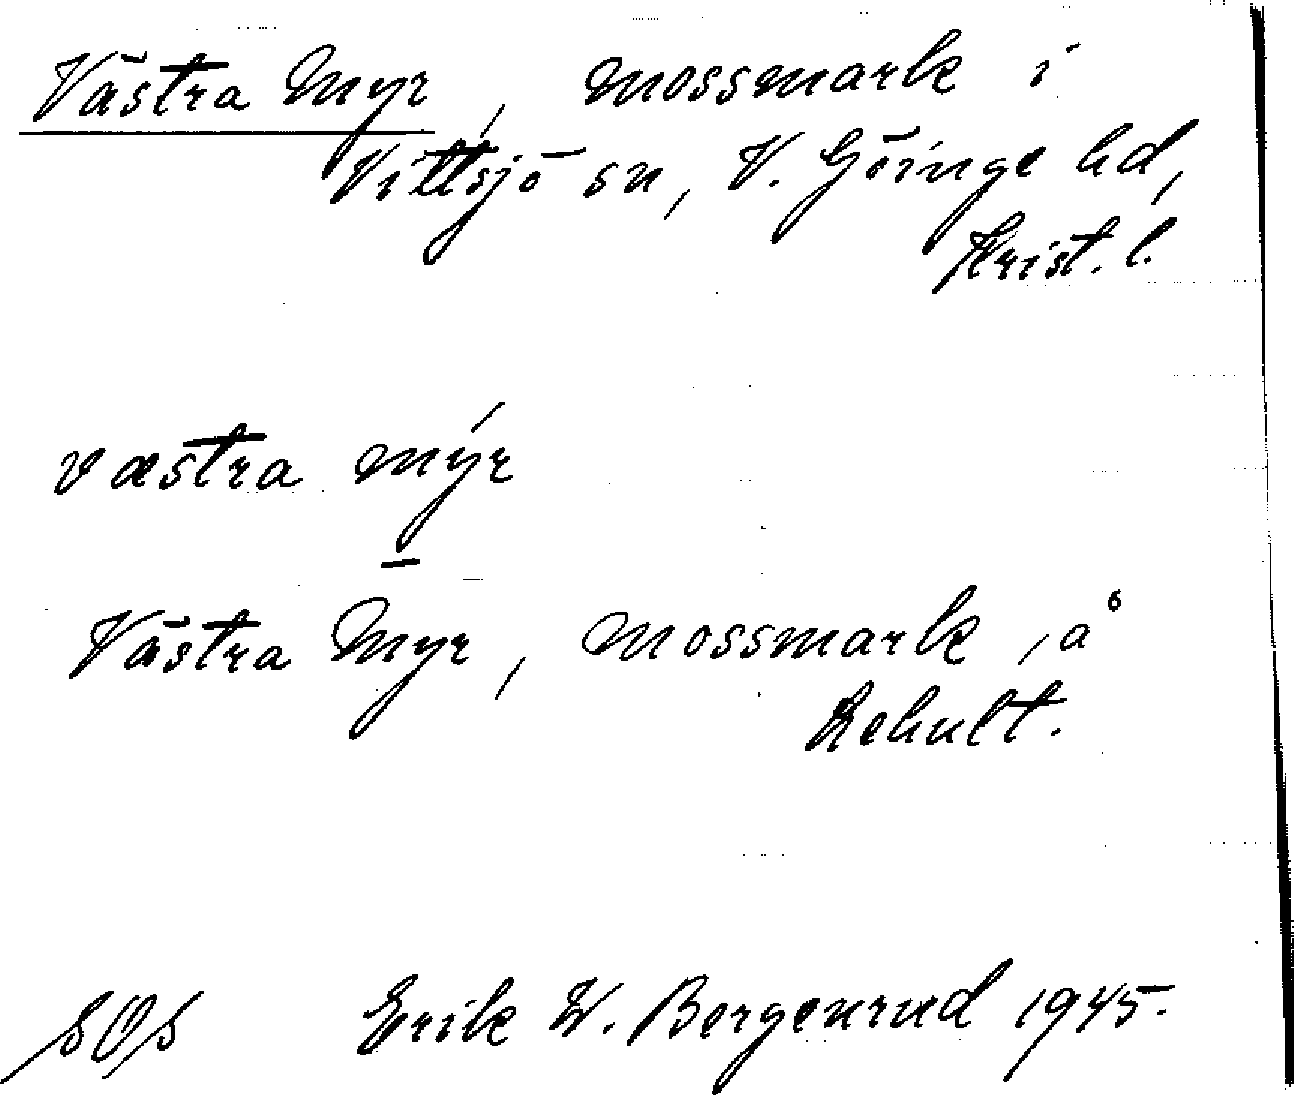 Västra Myr, mossmark i
Vittsjö sn, V. Göinge hd,
Krist. l.
væstra mýr
Västra Myr, mossmark, å
Rehult.
SOS Erik W. Bergenrud 1945.